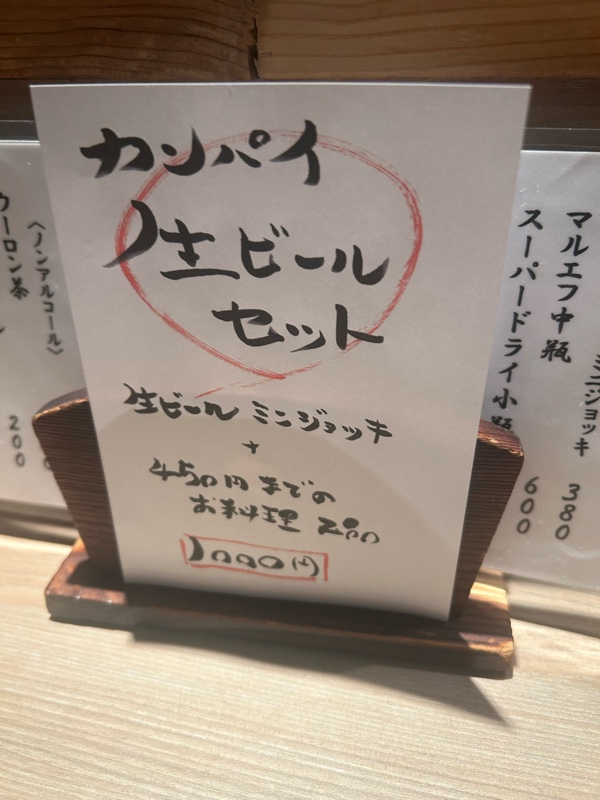 カンパイ
生ビール
セット
生ビール ミニジョッキ
+
450円までの
お料理 2品
1000円
マルエフ中瓶
スーパードライ小瓶 600
ミニジョッキ 380
〈ノンアルコール〉
ウーロン茶 200